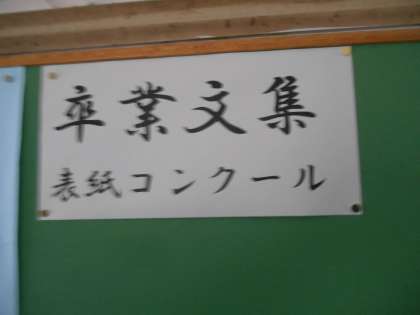 卒業文集
表紙コンクール